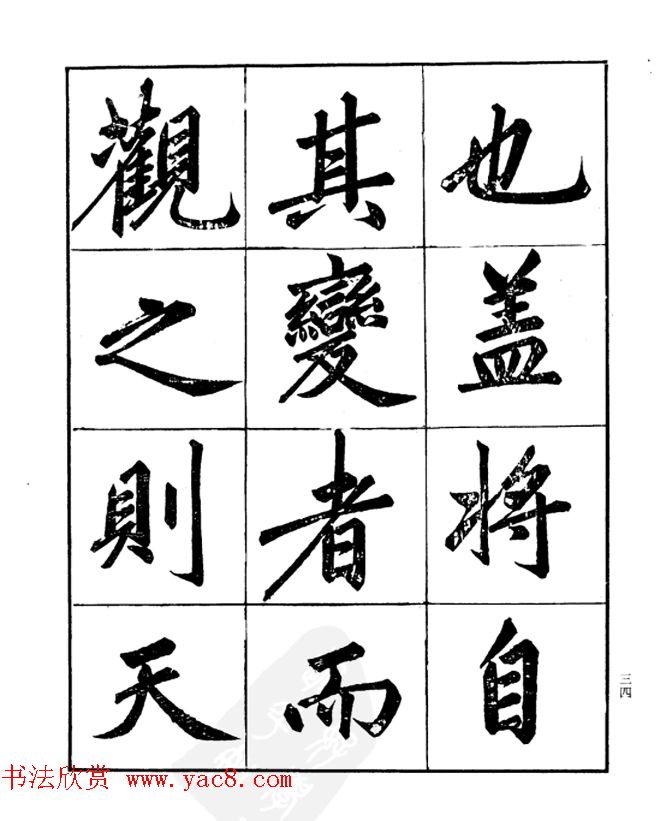 也盖将自
其變者而
觀之則天
三四
书法欣赏 www.yac8.com